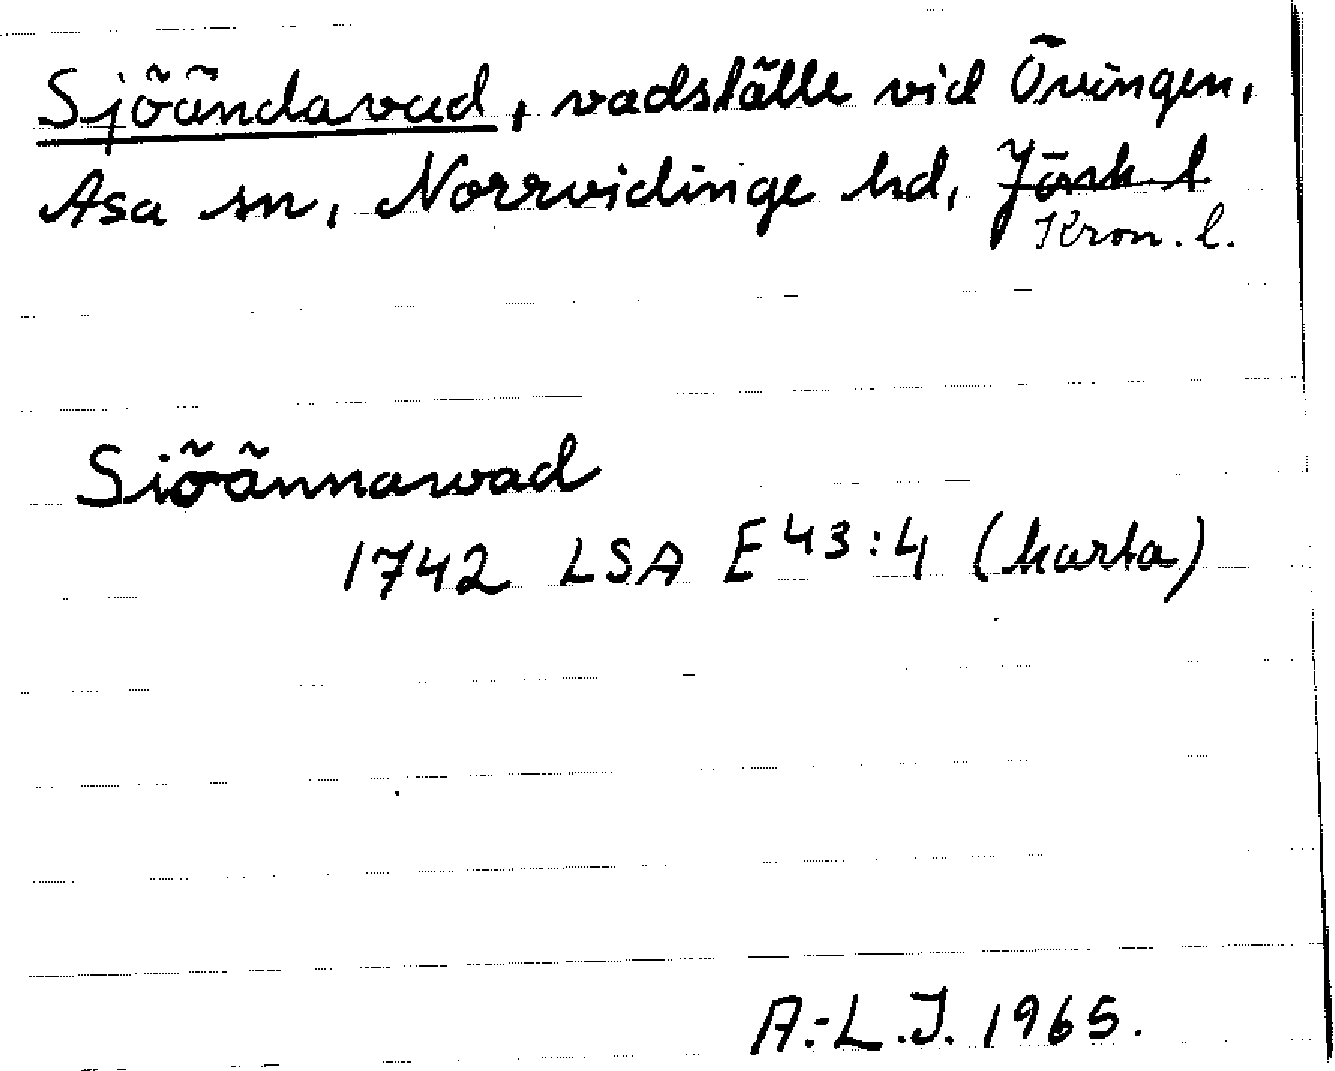 Sjöändavad, vadställe vid Övingen,
Asa sn, Norrvidinge hd, Jönk l
Kron. l.
Siöännawad
1742 LSA E 43:4 (karta)
A.-L.J. 1965.